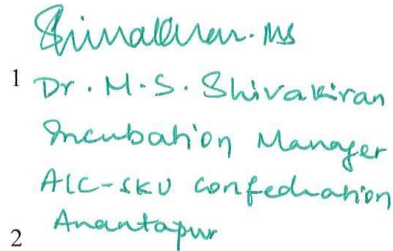 Shivakiran. MS
1 Dr. M. S. Shivakiran
Incubation Manager
AIC-SKU confedration
2 Anantapur